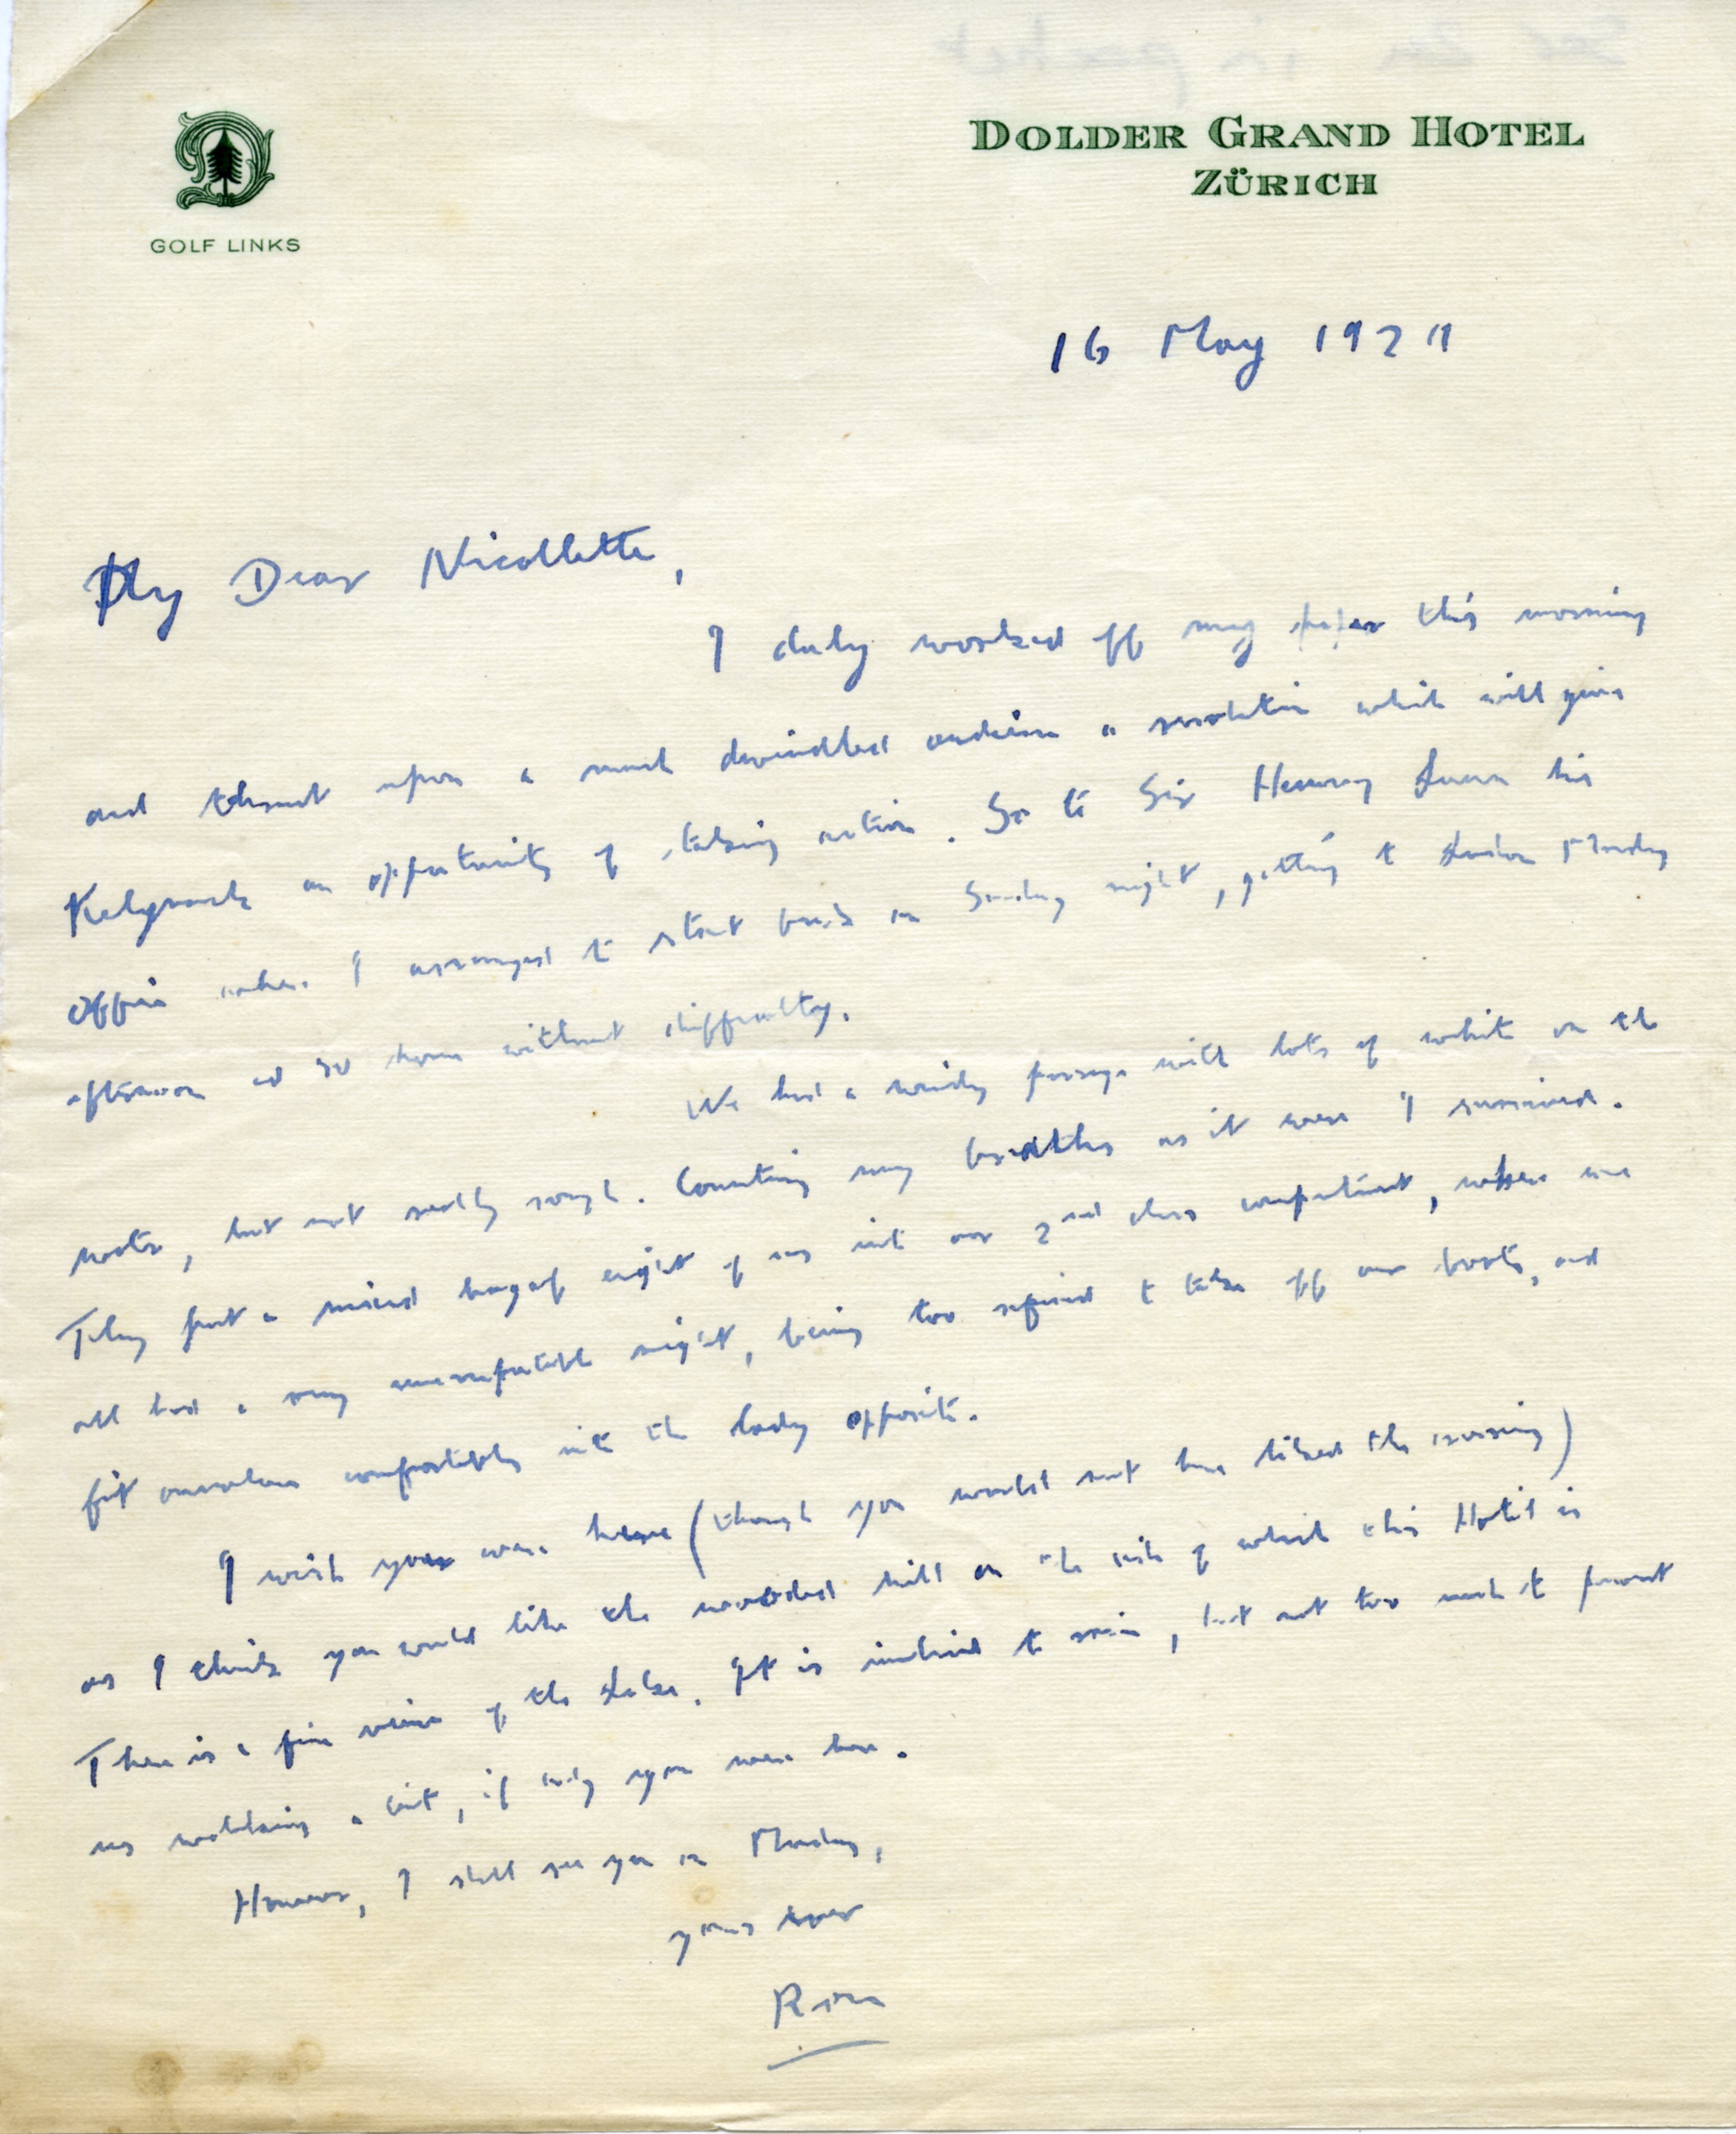 DOLDER GRAND HOTEL
ZÜRICH
GOLF LINKS
16 May 1929
My Dear Nicollette,
I duly worked off my paper this morning
and thrust upon a much dwindled audience a resolution which will give
Kelynack an opportunity of taking action. So to Sir Henry Lunn his
Office where I arranged to start back on Sunday night, getting to London Monday
afternoon and so home without difficulty.
We had a windy passage with lots of white on the
water, but not really rough. Counting my breaths as it were I survived.
They put a mixed bag of eight of us into our 2nd class compartment, where we
all had a very uncomfortable night, being too refined to take off our boots, and
fit ourselves comfortably into the lady opposite.
I wish you were here (though you would not have liked the crossing)
as I think you would like the wooded hill on the side of which this Hotel is
There is a fine view of the Lake. It is inclined to rain, but not too much to prevent
us walking a bit, if only you were here.
However, I shall see you on Monday,
yours ever
Ron